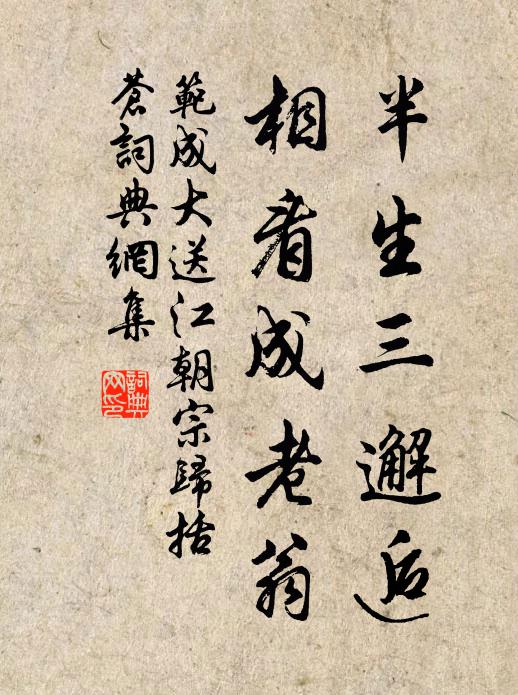 半生三邂逅
相看成老翁
範成大送江朝宗歸括
蒼詞典網集
詞典
网印